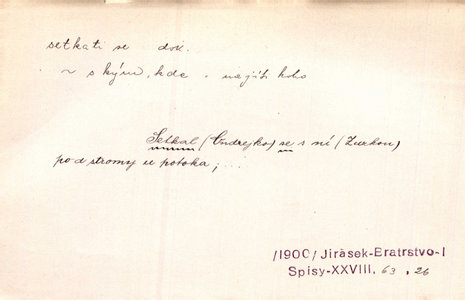 setkati se dok.
~ s kým, kde. najíti koho
Setkal (Ondrejko) se s ní (Zurkou)
pod stromy u potoka; ...
/1900/ Jirásek-Bratrstvo-I
Spisy-XXVIII. 63, 26